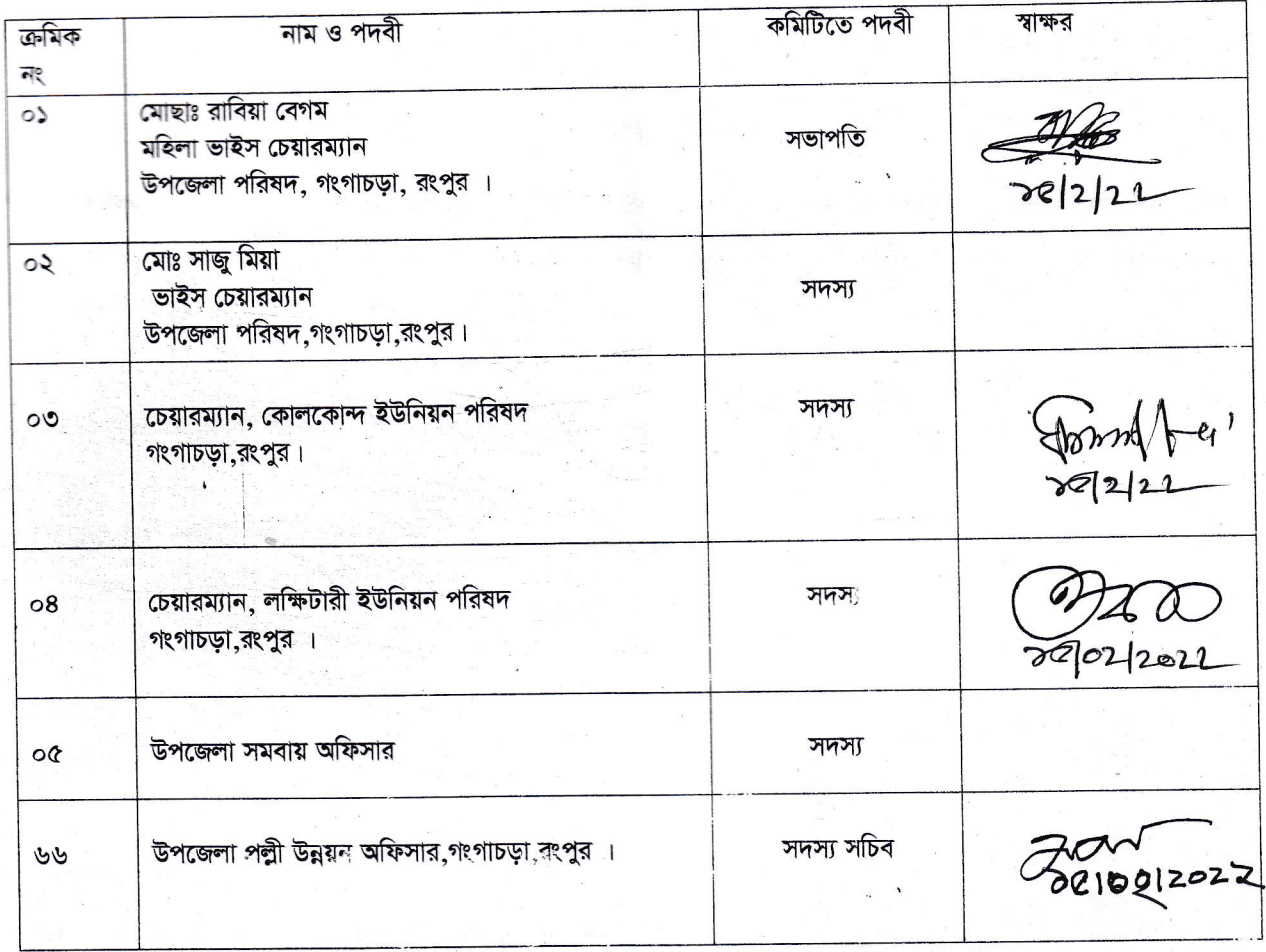 ক্রমিক নাম ও পদবী কমিটিতে পদবী স্বাক্ষর
নং
০১ মোছাঃ রাবিয়া বেগম
মহিলা ভাইস চেয়ারম্যান সভাপতি
উপজেলা পরিষদ, গংগাচড়া, রংপুর ।
১৫/2/22
০২ মোঃ সাজু মিয়া
ভাইস চেয়ারম্যান সদস্য
উপজেলা পরিষদ,গংগাচড়া,রংপুর।
০৩ চেয়ারম্যান, কোলকোন্দ ইউনিয়ন পরিষদ সদস্য
গংগাচড়া,রংপুর।
১৫/2/22
০৪ চেয়ারম্যান, লক্ষিটারী ইউনিয়ন পরিষদ সদস্য
গংগাচড়া,রংপুর ।
১৫/02/2022
০৫ উপজেলা সমবায় অফিসার সদস্য
৬৬ উপজেলা পল্লী উন্নয়ন অফিসার,গংগাচড়া,রংপুর । সদস্য সচিব